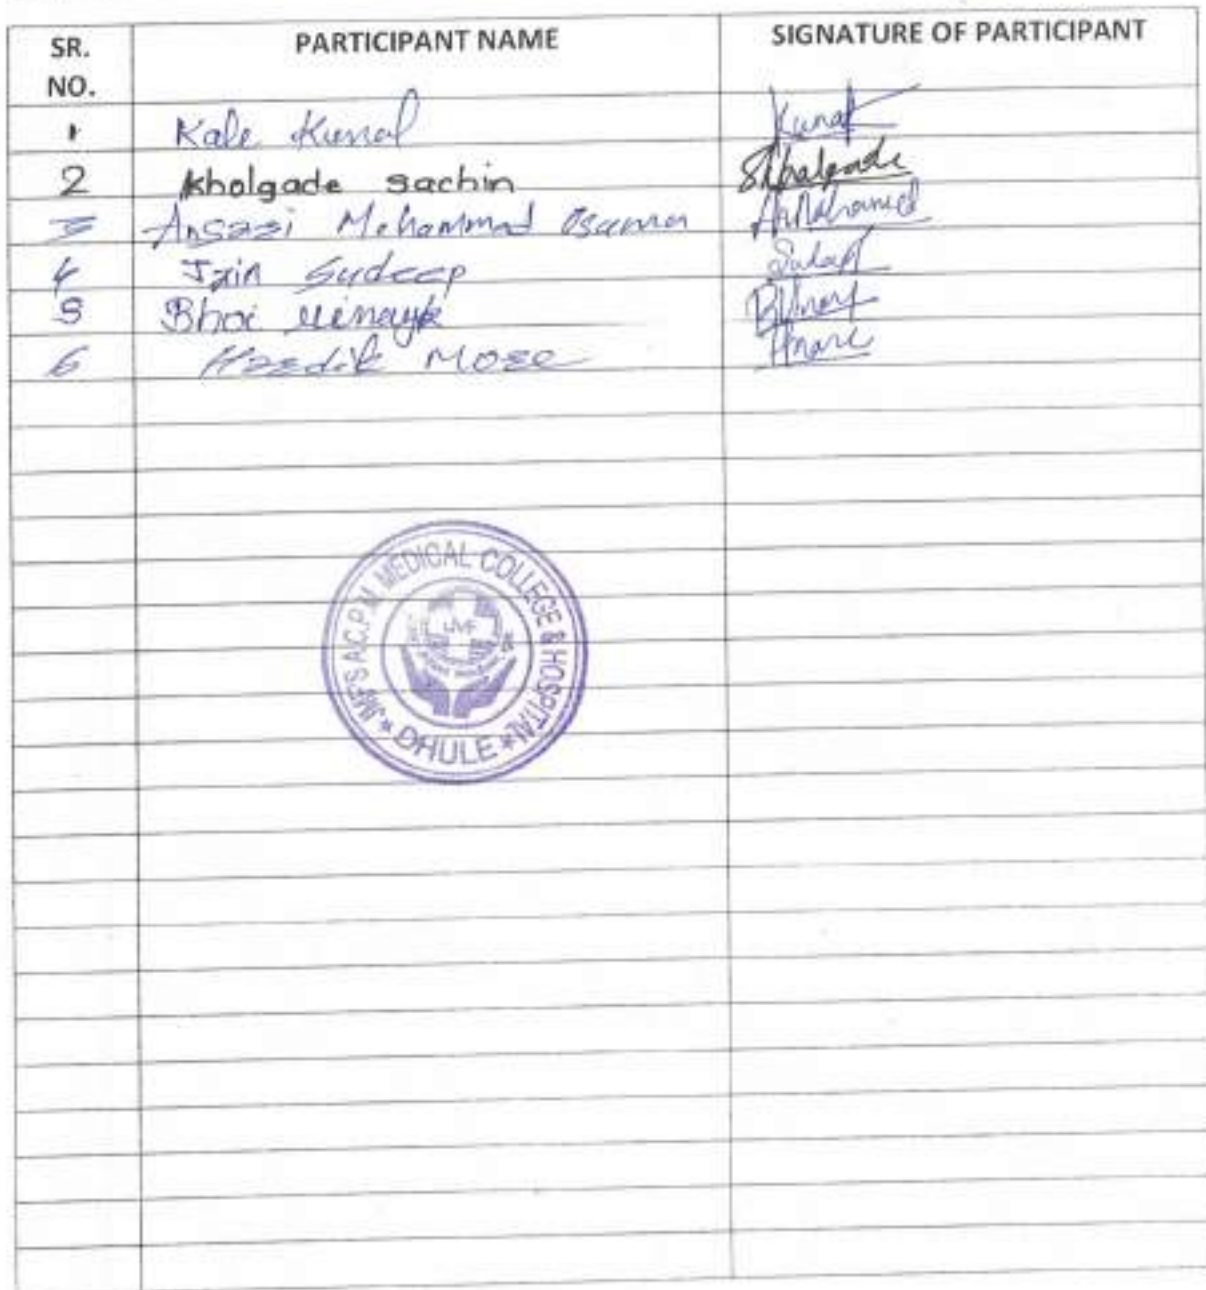 SR. NO. PARTICIPANT NAME SIGNATURE OF PARTICIPANT
1 Kale Kunal Kunal
2 Kholgade Sachin SKholgade
3 Ansari Mohammad Osama
4 Jain Sudeep
5 Bhoi Vinayk
6 Hardik More Hmore
JMF'S A.C.P.M. MEDICAL COLLEGE & HOSPITAL
JMF
* DHULE *